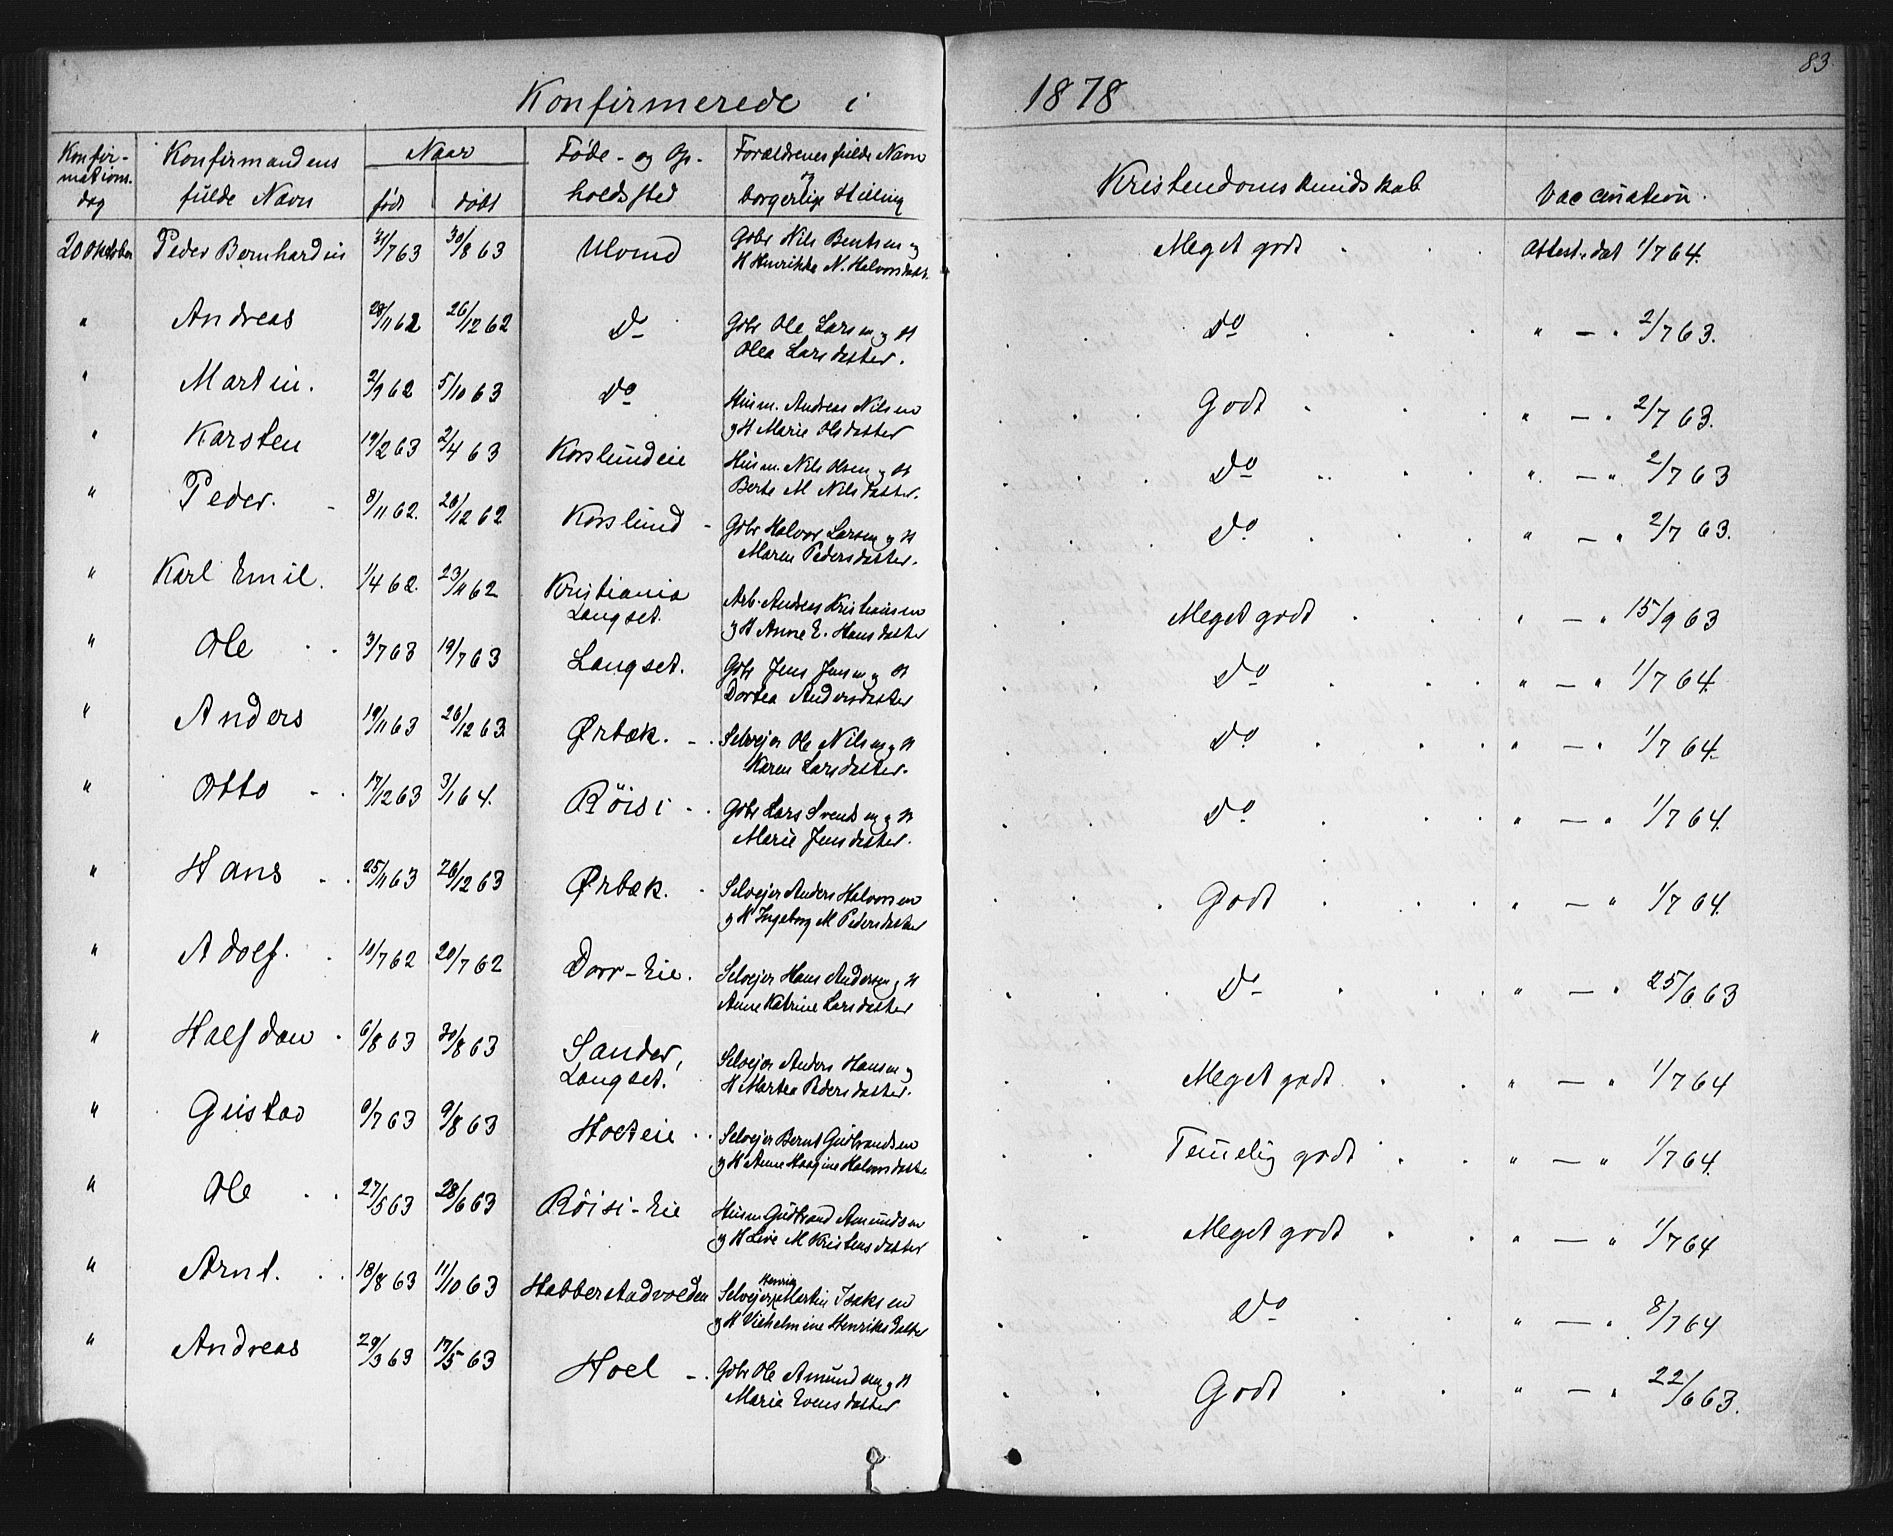 83
Konfirmerede i 1878
Konfir-
mations-
dag
Konfirmandens
fulde Navn
Naar
født
døbt
Føde- og Op-
holdssted
Forældrenes fulde Navn
og
borgerlige Stilling
Kristendomskundskab
Vaccination.
20 Oktober Peder Bernhardin 31/7 63 30/8 63 Ulvind Gbr Nils Bentsen og Meget godt Attest. dat 1/7 64.
H Henrikke N. Halvorsdatt.
" Andreas 28/11 62 26/12 62 Do Gbr Ole Larsen og H Do " — " 2/7 63.
Olea Larsdatter.
" Martin. 2/9 62 5/10 63 Do Husm. Andreas Nilsen Godt " — " 2/7 63.
og H Marie Olsdatter
" Karsten 19/2 63 2/4 63 Korslundeie Husm. Nils Olsen og H Do " — " 2/7 63
Berte M Nilsdatter.
" Peder. 8/11 62. 26/12 62 Korslund Gbr Halvor Larsen og H Do " — " 2/7 63.
Maren Pedersdatter.
" Karl Emil. 1/4 62. 23/11 62 Kristiania Arb. Andreas Kristiansen Meget godt " — " 15/9 63
Langset. og H Anne E. Hansdatter
" Ole 3/7 63 19/7 63 Langset. Gbr Jens Jensen og H Do " — " 1/7 64.
Dortea Andersdatter
" Anders 19/11 63 26/12 63 Ørbæk. Selvejer Ole Nilsen og H Do " — " 1/7 64.
Karen Larsdatter.
" Otto 17/12 63 3/1 64. Röisi Gbr Lars Svendsen og H Do " — " 1/7 64.
Marie Jensdatter.
" Hans 25/11 63 26/12 63 Ørbæk. Selvejer Anders Halvorsen Godt " — " 1/7 64.
og H Ingeborg M Pedersdatter
" Adolf. 10/7 62 20/7 62 Dorr-Eie. Selvejer Hans Andersen og H Do " — " 25/6 63
Anne Katrine Larsdatter
" Halfdan 6/8 63 30/8 63 Sander, Selvejer Anders Hansen og Meget godt " — " 1/7 64
Langset. H Martea Pedersdatter.
" Gustav 9/7 63 9/8 63 Holteie Selvejer Bernt Gudbrandsen Temelig godt " — " 1/7 64.
og H Anne Haagine Halvorsdatter
" Ole 27/5 63 28/6 63 Röisi-Eie Husm Gudbrand Amundsen Meget godt " — " 1/7 64
og H Live M Kristensdatter
" Arnt. 18/8 63 11/10 63 Habberstadvolden Selvejer Henrik Martin Isaksen Do " — " 8/7 64
og H Vilhelmine Henriksdatter
" Andreas 29/3 63 17/5 63 Hoel Gbr Ole Amundsen og H Godt " — " 22/6 63.
Marie Evensdatter